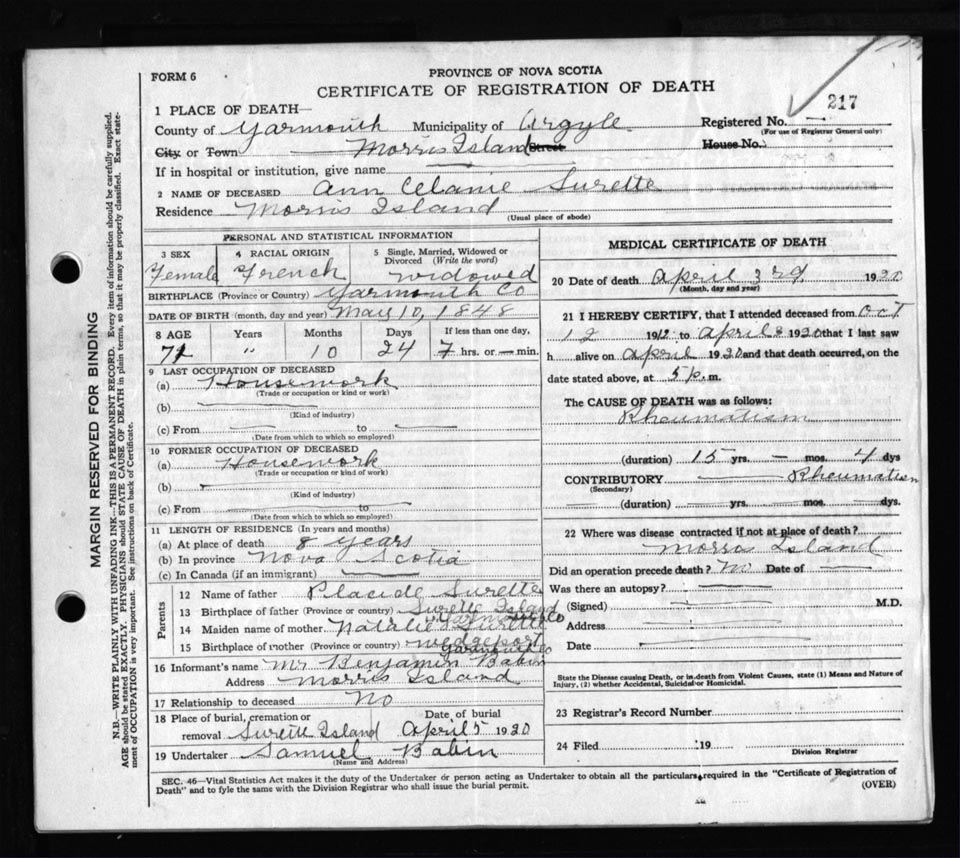 FORM 6
PROVINCE OF NOVA SCOTIA
CERTIFICATE OF REGISTRATION OF DEATH
217
1 PLACE OF DEATH—
County of Yarmouth Municipality of Argyle Registered No. —
(For use of Registrar General only)
City or Town Morris Island Street House No.
If in hospital or institution, give name
2 NAME OF DECEASED Ann Celanie Surette
Residence Morris Island
(Usual place of abode)
PERSONAL AND STATISTICAL INFORMATION
3 SEX 4 RACIAL ORIGIN 5 Single, Married, Widowed or Divorced (Write the word)
Female French widowed
BIRTHPLACE (Province or Country) Yarmouth Co
DATE OF BIRTH (month, day and year) May 10, 1848
8 AGE Years Months Days If less than one day,
71 " 10 24 7 hrs. or — min.
9 LAST OCCUPATION OF DECEASED
(a) Housework
(Trade or occupation or kind or work)
(b)
(Kind of industry)
(c) From — to —
(Date from which to which so employed)
10 FORMER OCCUPATION OF DECEASED
(a) Housework
(Trade or occupation or kind of work)
(b)
(Kind of industry)
(c) From to
(Date from which to which so employed)
11 LENGTH OF RESIDENCE (In years and months)
(a) At place of death 8 years
(b) In province Nova Scotia
(c) In Canada (if an immigrant)
Parents
12 Name of father Placide Surette
13 Birthplace of father (Province or country) Surette Island
Yarmouth Co
14 Maiden name of mother Natalie Surette
15 Birthplace of mother (Province or country) Wedgeport
Yarmouth Co
16 Informant's name Mr Benjamin Babin
Address Morris Island
17 Relationship to deceased No
18 Place of burial, cremation or Date of burial
removal Surette Island April 5 1920
19 Undertaker Samuel Babin
(Name and Address)
MEDICAL CERTIFICATE OF DEATH
20 Date of death April 3rd 1920
(Month, day and year)
21 I HEREBY CERTIFY, that I attended deceased from Oct
12 1912 to April 1920 that I last saw
h alive on April 1920 and that death occurred, on the
date stated above, at 5 p.m.
The CAUSE OF DEATH was as follows:
Rheumatism
(duration) 15 yrs. — mos. 4 dys
CONTRIBUTORY Rheumatism
(Secondary)
(duration) — yrs. — mos. — dys.
22 Where was disease contracted if not at place of death?
Morris Island
Did an operation precede death? No Date of —
Was there an autopsy?
(Signed) M.D.
Address
Date
State the Disease causing Death, or in death from Violent Causes, state (1) Means and Nature of
Injury, (2) whether Accidental, Suicidal or Homicidal.
23 Registrar's Record Number
24 Filed 19
Division Registrar
SEC. 46—Vital Statistics Act makes it the duty of the Undertaker or person acting as Undertaker to obtain all the particulars required in the "Certificate of Registration of
Death" and to fyle the same with the Division Registrar who shall issue the burial permit.
(OVER)
MARGIN RESERVED FOR BINDING
N.B.—WRITE PLAINLY WITH UNFADING INK—THIS IS A PERMANENT RECORD. Every item of information should be carefully supplied.
AGE should be stated EXACTLY. PHYSICIANS should STATE CAUSE OF DEATH in plain terms, so that it may be properly classified. Exact state-
ment of OCCUPATION is very important. See instructions on back of Certificate.